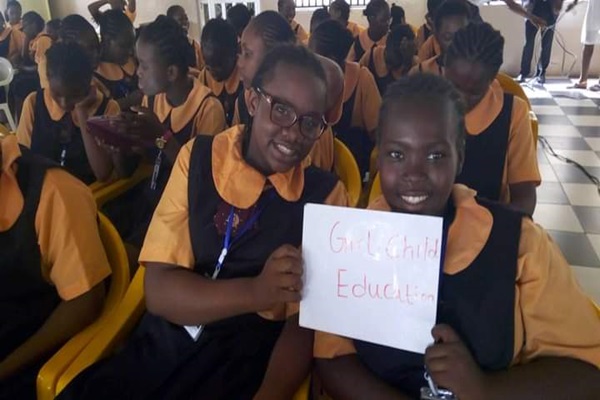 Girl Child
Education